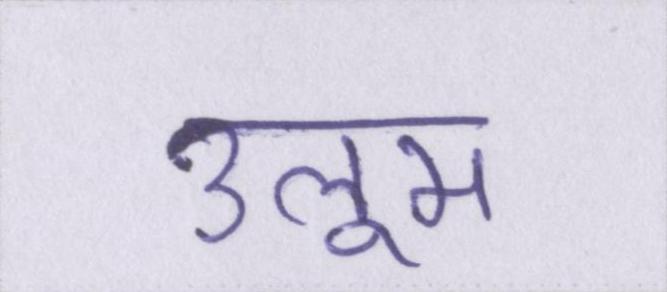 उलूम